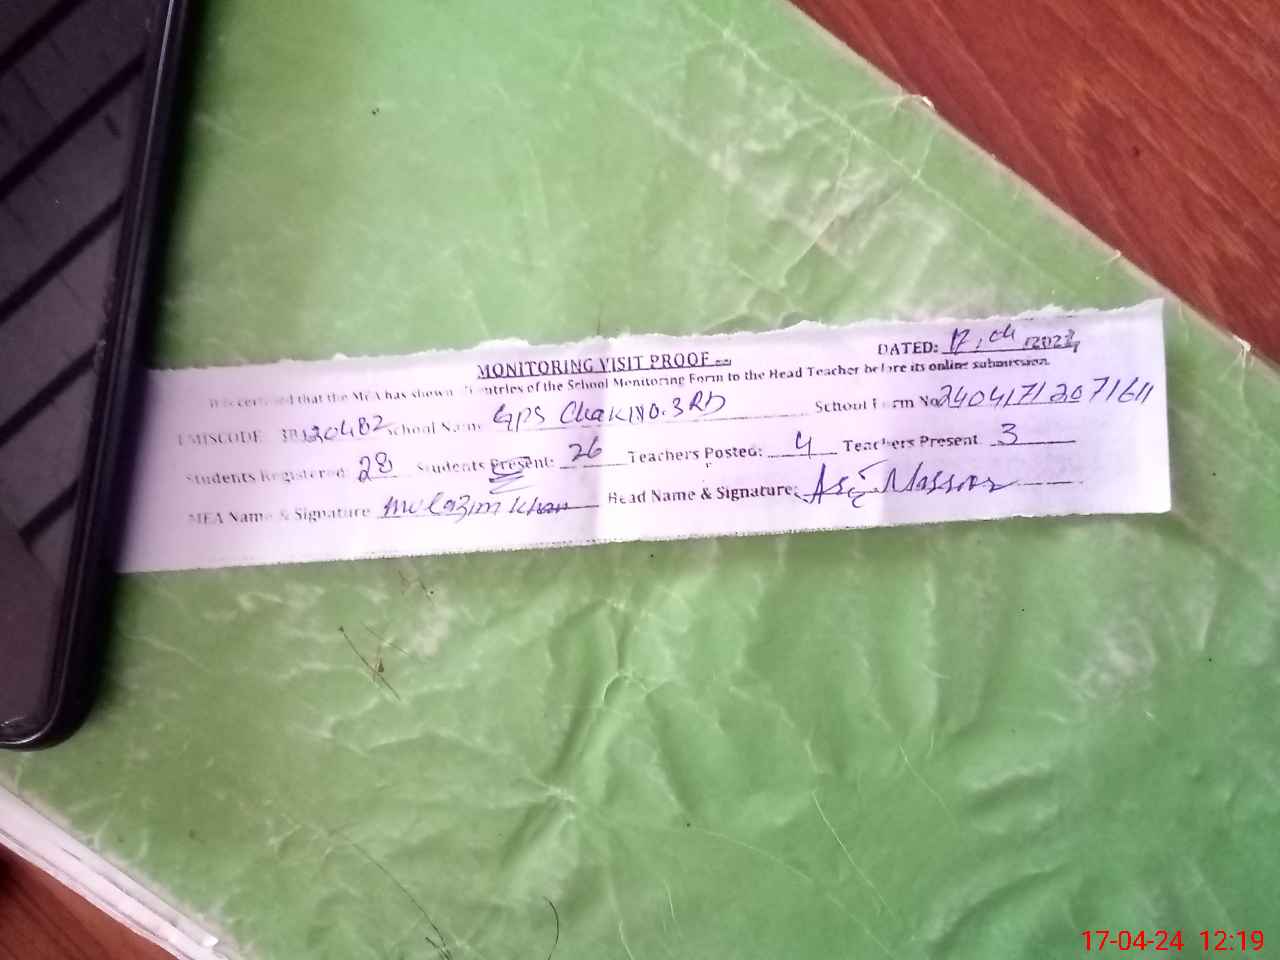 MONITORING VISIT PROOF
DATED: 17, 04 /2024
It is certified that the MEA has shown entries of the School Monitoring Form to the Head Teacher before its online submission.
EMISCODE 38130482 School Name GPS Chak NO. 3RD School Form No 24041712071611
Students Registered: 28 Students Present: 26 Teachers Posted: 4 Teachers Present 3
MEA Name & Signature Mulazim Khan Head Name & Signature:
17-04-24 12:19